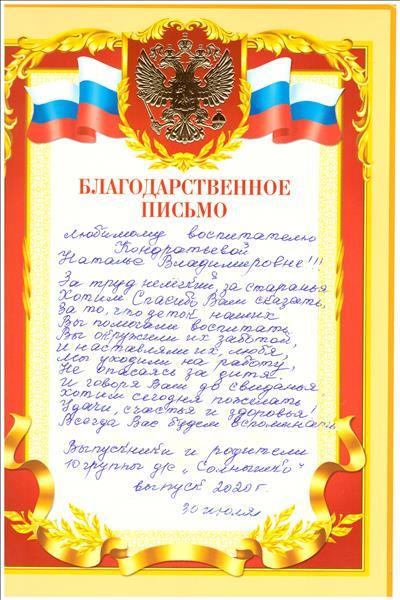 БЛАГОДАРСТВЕННОЕ
ПИСЬМО
Любимому воспитателю
Кондратьевой
Наталье Владимировне!!!
За труд нелёгкий, за старанья
Хотим Спасибо Вам сказать,
За то, что деток наших
Вы помогали воспитать
Вы окружили их заботой,
И наставляли их, любя,
Мы уходили на работу,
Не опасаясь за дитя
И говоря Вам до свиданья
Хотим сегодня пожелать
Удачи, счастья и здоровья!
Всегда Вас будем вспоминать
Выпускники и родители
10 группы д/с „Солнышко"
выпуск 2020 г.
30 июля